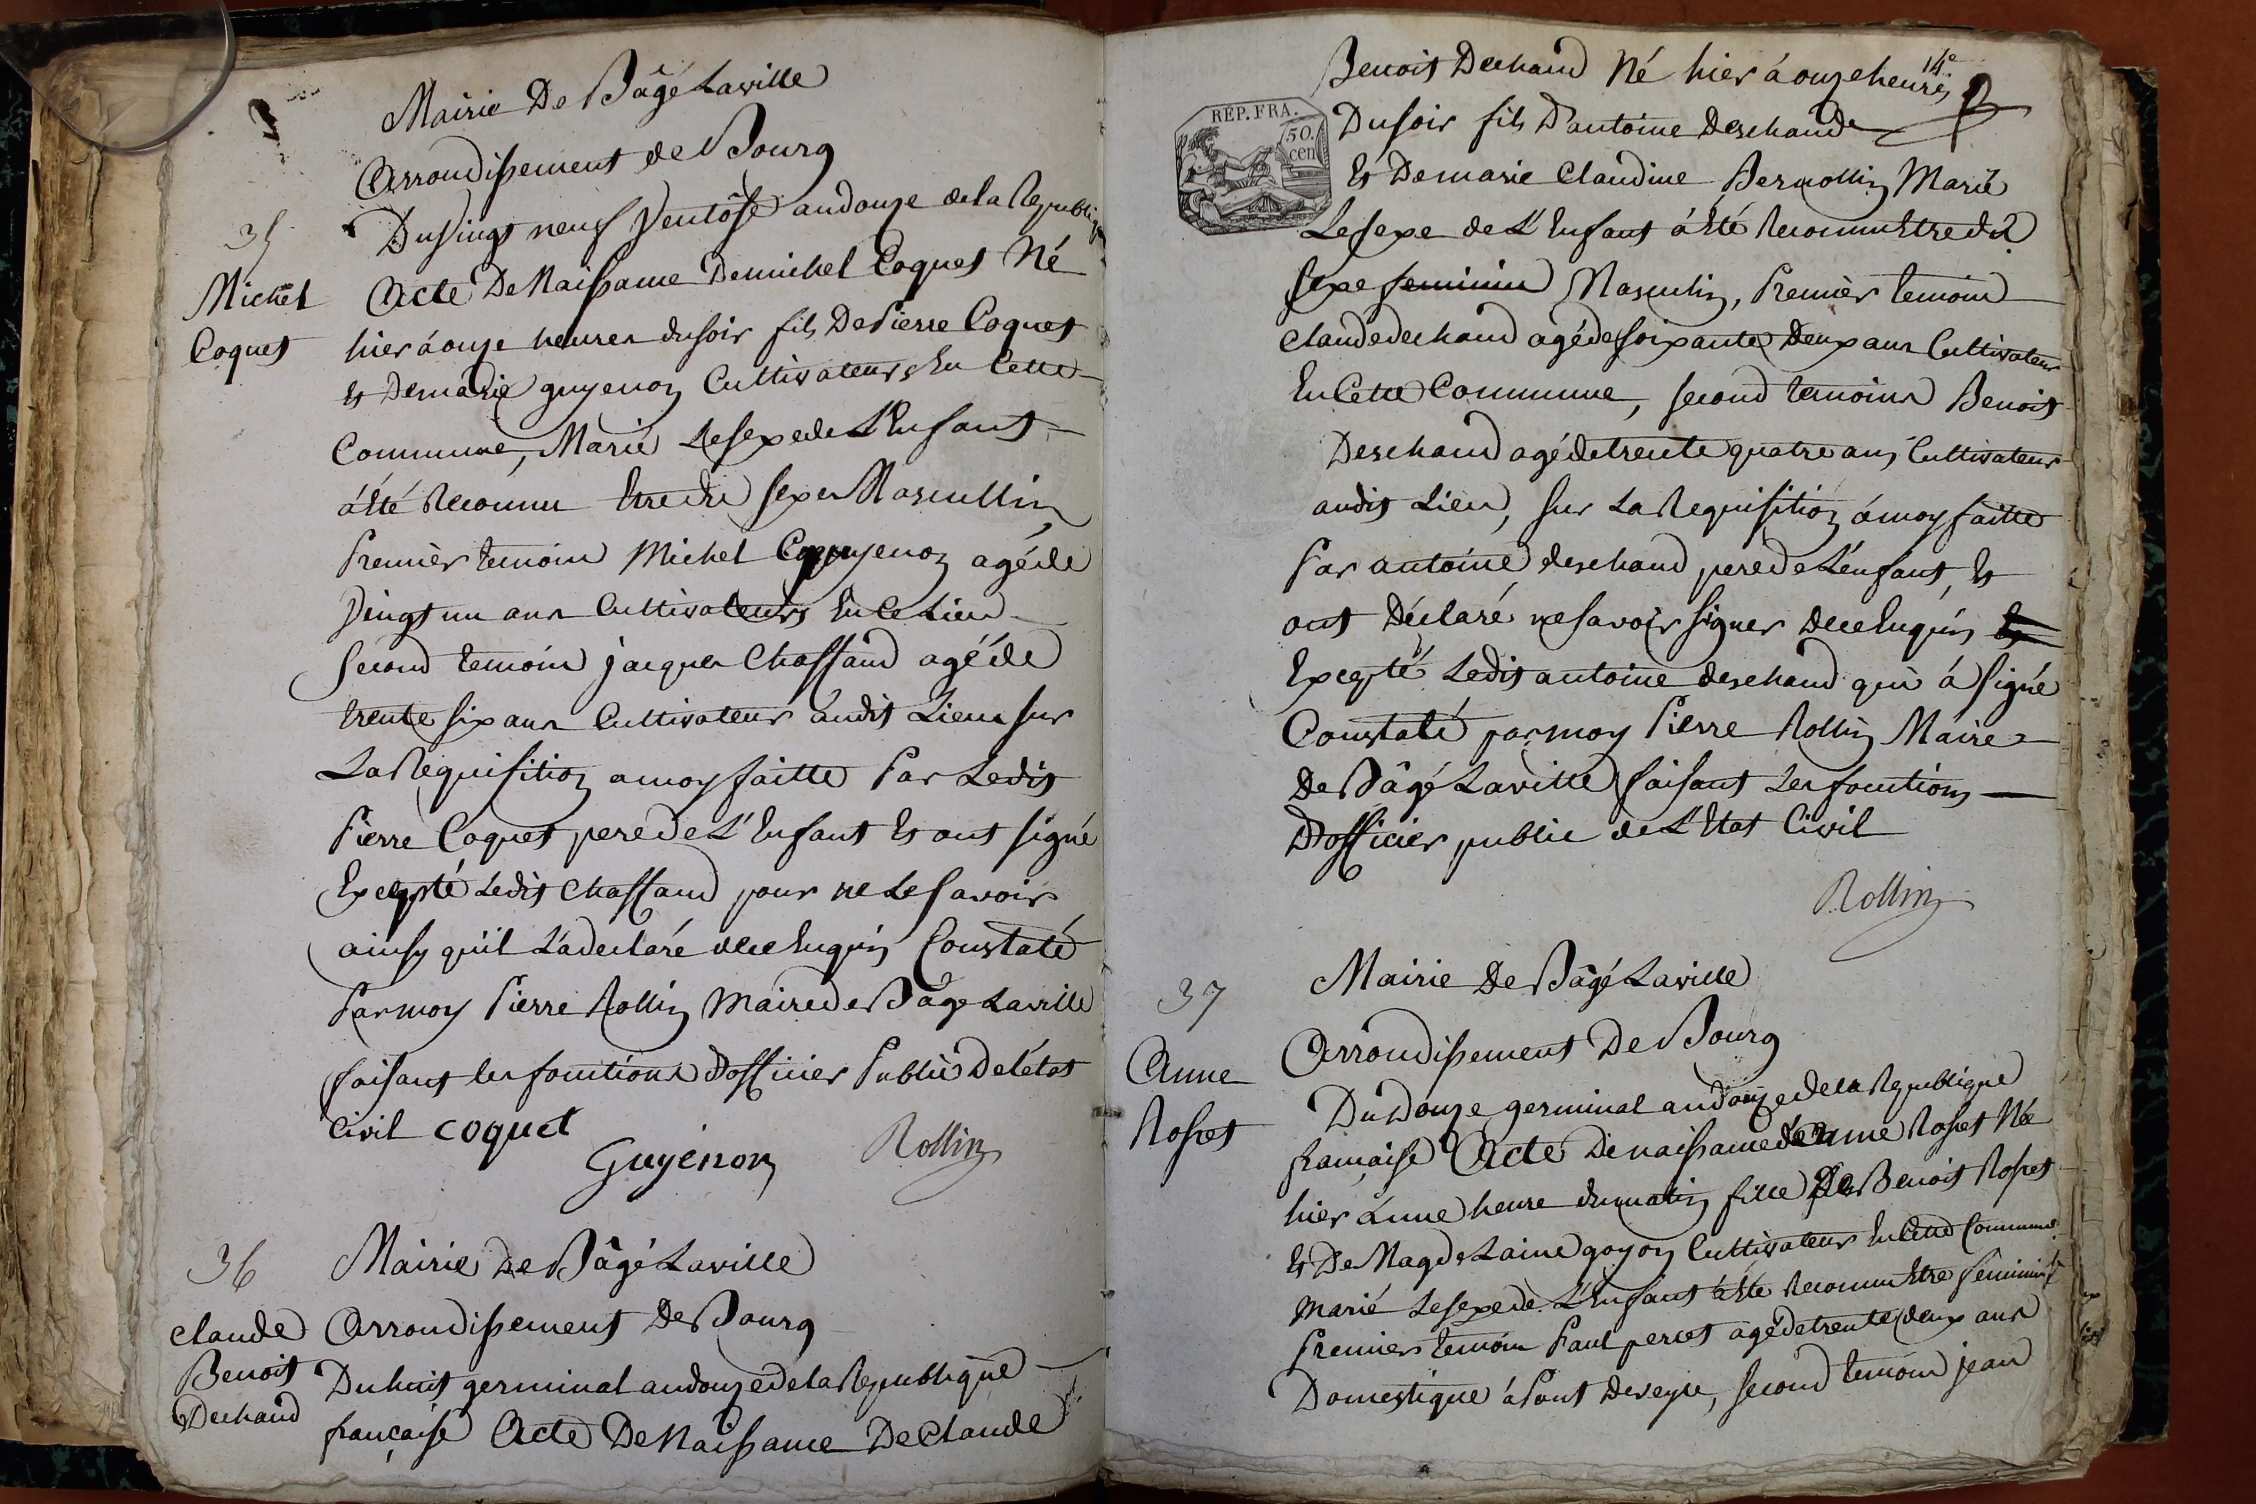 Mairie De Bâgé Laville
Arrondissement de Bourg
35
Du Vingt neuf Ventôse an douze de la Republique
Michel
Coquet
Acte De Naissance De michel Coquet Né
hier à onze heures du soir fils De Pierre Coquet
Et De marie guyenon Cultivateurs En Cette
Commune, Marié Le sexe de L'Enfant
á Eté Reconnu Etre du sexe Mascullin
Premièr temoin Michel guyenon agé de
Vingt un ans Cultivateurs En Ce Lieu
Second temoin jacques Chaffaud agé de
trente six ans Cultivateur audit Lieu sur
La Requisition a moy faitte Par Ledit
Pierre Coquet pere de L'Enfant Et ont signé
Excepté Ledit Chaffaud pour ne Le Savoir
ainsy qu'il L'a declaré de ce Enquis Constaté
Par moy Pierre Rollin Maire de Bâgé Laville
faisant les fonctions D'officier Public De l'état
Civil coquet
Guyenon
Rollin
36
Mairie de Bâgé Laville
claude
Benoit
Dechaud
Arrondissement De Bourg
Du huit germinal an douze de la Republique
française Acte De Naissance De Claude
14e
Benoit Dechaud Né hier á onze heures
RÉP. FRA.
50.
cen
Du soir fils D'antoine Deschaud
Et De marie Claudine Bernollin Marié
Le sexe de L'Enfant á Eté Reconnu Etre du
sexe feminin Masculin, Premièr temoin
Claude dechaud agé de soixante Deux ans Cultivateur
En Cette Commune, second temoins Benoit
Deschaud agé de trente quatre ans Cultivateur
audit Lieu, sur La Requisition á moy faitte
Par antoine deschaud pere de L'enfant, Et
ont Déclaré ne savoir signer de ce Enquis Et
Excepté Ledit antoine deschaud qui á signé
Constaté par moy Pierre Rollin Maire
De Bâgé Laville faisant Les fonctions
D'officier public de L'Etat Civil
Rollin
37
Mairie De Bâgé Laville
Anne
Rosset
Arrondissement De Bourg
Du Douze germinal an douze de la Republique
française Acte De naissance de anne Rosset Née
hier á une heure du matin fille De Benoit Rosset
Et De Magdelaine goyon Cultivateur En Cette Commune
Marié Le sexe de L'Enfant á Eté Reconnu Etre feminin
Premier temoin Paul percet agé de trente deux ans
Domestique á Pont deveyle, second temoin jean